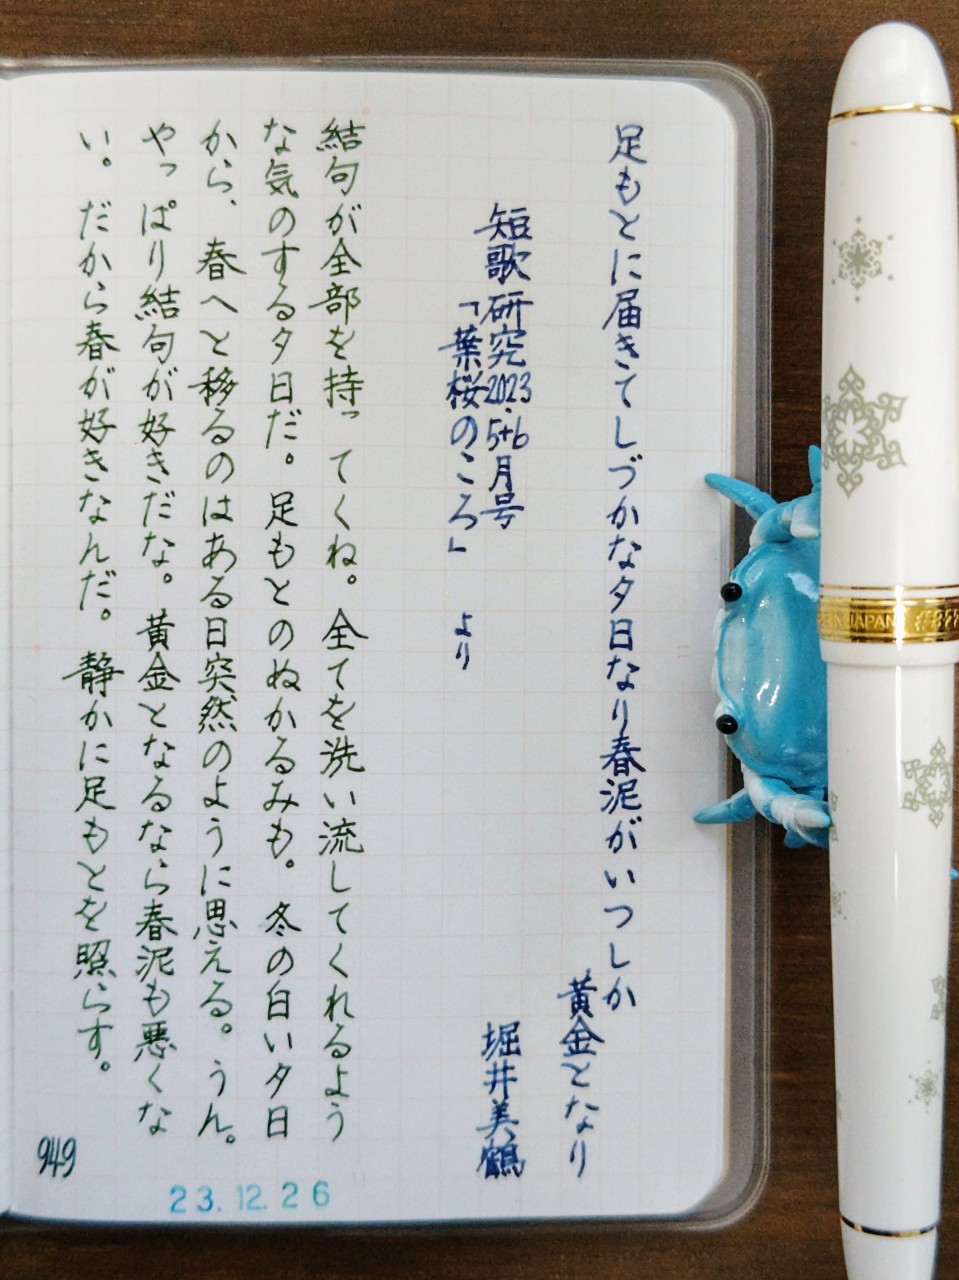 足もとに届きてしづかな夕日なり春泥がいつしか
黄金となり
短歌研究2023.5+6月号
「葉桜のころ」 より
堀井美鶴
結句が全部を持ってくね。全てを洗い流してくれるよう
な気のする夕日だ。足もとのぬかるみも。冬の白い夕日
から、春へと移るのはある日突然のように思える。うん。
やっぱり結句が好きだな。黄金となるなら春泥も悪くな
い。だから春が好きなんだ。静かに足もとを照らす。
949
23.12.26
JAPAN